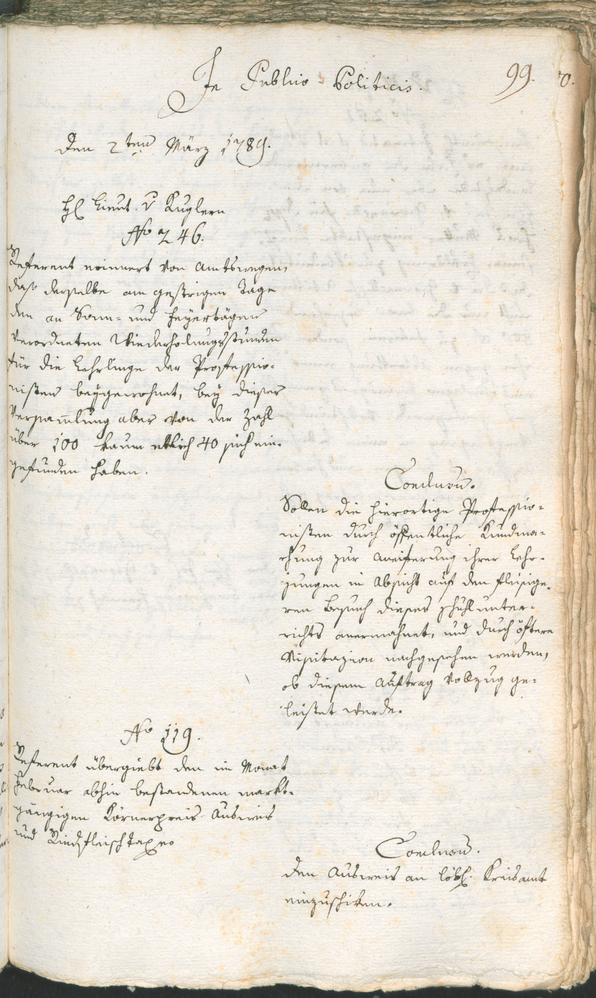 In Publico Politicis.
99.
Den 2ten März 1789.
H. Lieut. v Kuglern
No 246.
Referent erinnert von Amtswegen,
daß derselbe am gestrigen Tage
den an Sonn- und Feyertägen
verordneten Wiederholungsstunden
für die Lehrlinge der Professio-
nisten beygewohnet, bey dieser
Versammlung aber von der Zahl
über 100 kaum etlich 40 sich ein-
gefunden haben.
Conclusum.
Sollen die hierortige Professio-
nisten durch öffentliche Kundma-
chung zur Aneiferung ihrer Lehr-
jungen in Absicht auf den fleisige-
ren Besuch dieses Schuhlunter-
richts anermahnet, und durch öftere
Visitazion nachgesehen werden,
ob diesem Auftrag Vollzug ge-
leistet werde.
No 119.
Referent übergiebt den im Monat
Februar abhin bestandenen markt-
gängigen Körnerpreis Ausweis
und Rindfleischtaxe
Conclusum.
Den Ausweis an löbl. Kreisamt
einzuschiken.